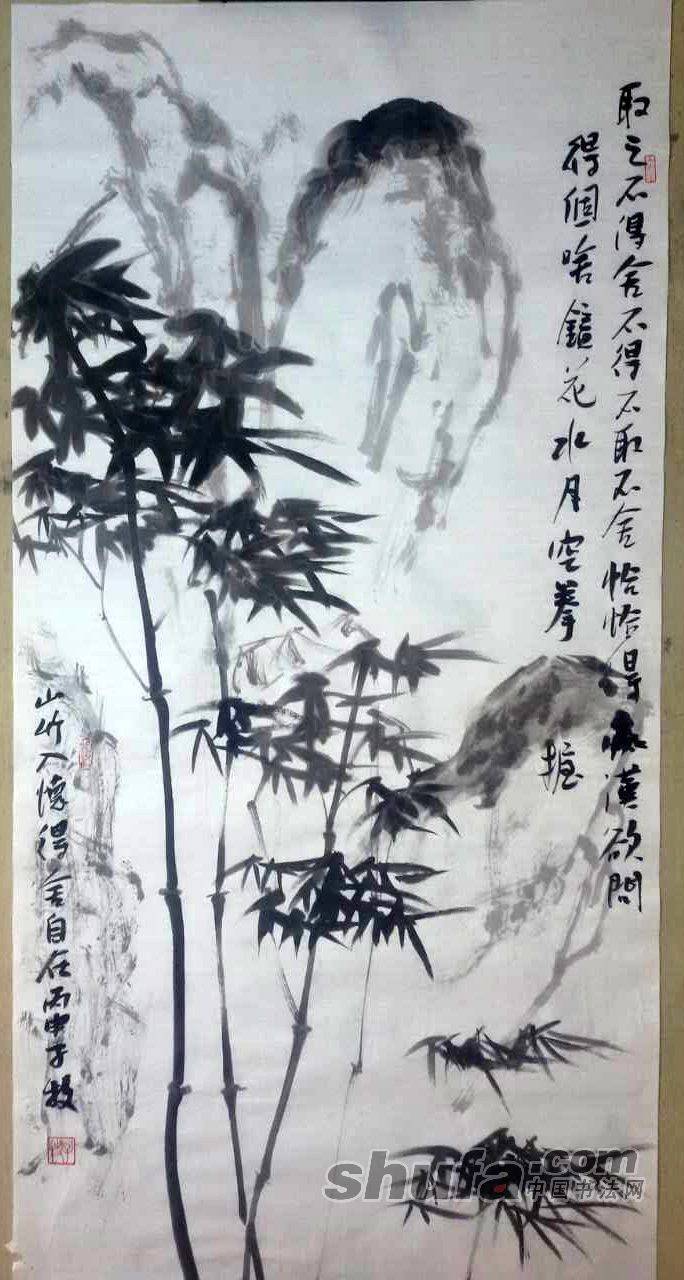 取之不得舍不得不取不舍恰恰得痴漢欲問
得個啥鏡花水月空拳握
山竹入懷得舍自在丙申子牧
shufa.com
中国书法网